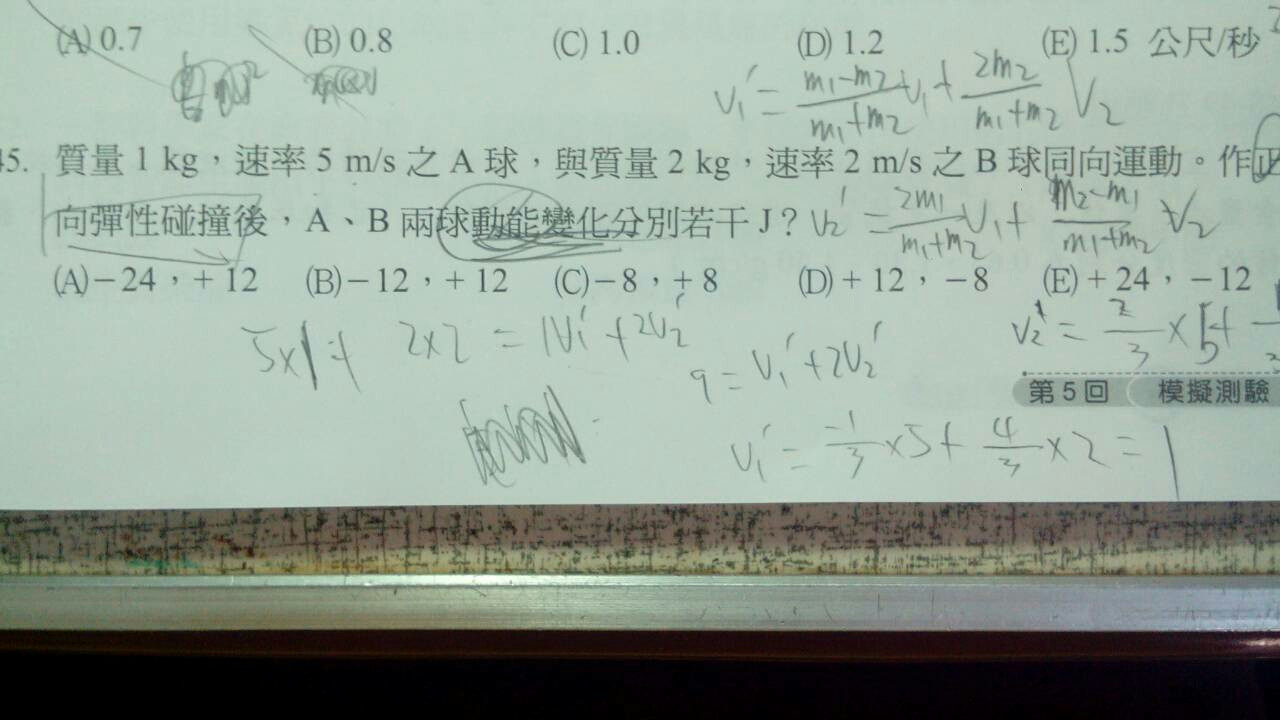 (A) 0.7 (B) 0.8 (C) 1.0 (D) 1.2 (E) 1.5 公尺/秒
v₁′ = (m₁-m₂)/(m₁+m₂) v₁ + 2m₂/(m₁+m₂) V₂
45. 質量 1 kg,速率 5 m/s 之 A 球,與質量 2 kg,速率 2 m/s 之 B 球同向運動。作正
向彈性碰撞後,A、B 兩球動能變化分別若干 J?
v₂′ = 2m₁/(m₁+m₂) v₁ + (m₂-m₁)/(m₁+m₂) V₂
(A)-24,+12 (B)-12,+12 (C)-8,+8 (D)+12,-8 (E)+24,-12
5×1+ 2×2 = 1V₁′+2V₂′
v₂′ = 2/3 × 5+
9 = V₁′+2V₂′
第 5 回 模擬測驗
v₁′ = -1/3 ×5+ 4/3 ×2 = 1